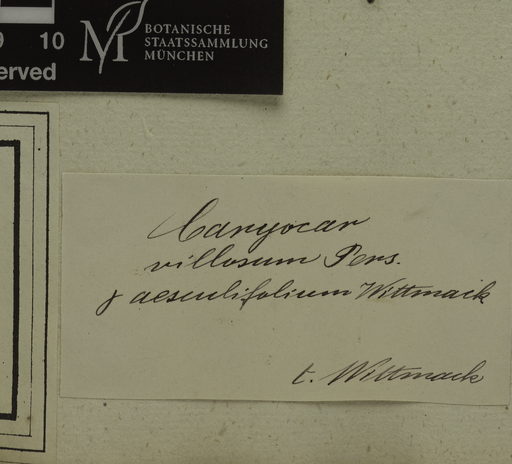 9 10
erved
M BOTANISCHE
STAATSSAMMLUNG
MÜNCHEN
Caryocar
villosum Pers.
γ aesculifolium Wittmack
t. Wittmack